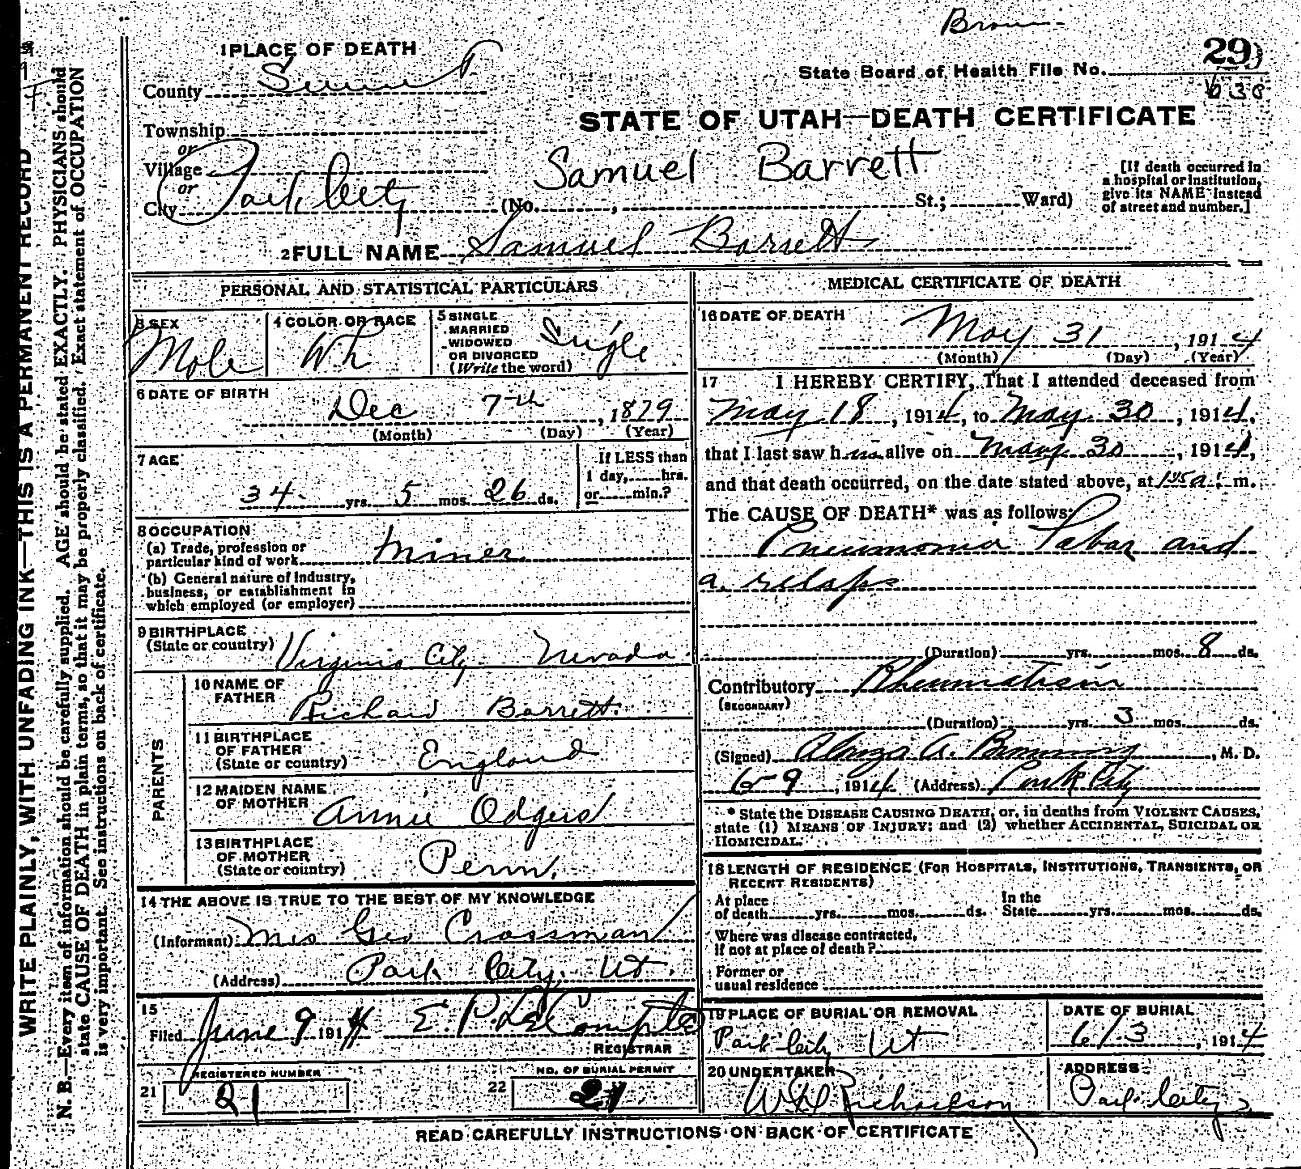 Brown
1 PLACE OF DEATH
State Board of Health File No. 29
County Summit
STATE OF UTAH—DEATH CERTIFICATE
Township
or
Village
or
City Park City (No. , St.; Ward)
Samuel Barrett
[If death occurred in a hospital or institution, give its NAME instead of street and number.]
2 FULL NAME Samuel Barrett
PERSONAL AND STATISTICAL PARTICULARS
3 SEX Male
4 COLOR OR RACE Wh
5 SINGLE MARRIED WIDOWED OR DIVORCED (Write the word) Single
6 DATE OF BIRTH Dec 7th, 1879
(Month) (Day) (Year)
7 AGE 34 yrs. 5 mos. 26 ds.
If LESS than 1 day, hrs. or min.?
8 OCCUPATION
(a) Trade, profession or particular kind of work Miner
(b) General nature of industry, business, or establishment in which employed (or employer)
9 BIRTHPLACE (State or country) Virginia City Nevada
PARENTS
10 NAME OF FATHER Richard Barrett
11 BIRTHPLACE OF FATHER (State or country) England
12 MAIDEN NAME OF MOTHER Annie Odgers
13 BIRTHPLACE OF MOTHER (State or country) Penn.
14 THE ABOVE IS TRUE TO THE BEST OF MY KNOWLEDGE
(Informant) Mrs Geo Crossman
(Address) Park City, Ut.
15
Filed June 9 1914 E. P. LeCompte
REGISTRAR
REGISTERED NUMBER
21 21
NO. OF BURIAL PERMIT
22 21
MEDICAL CERTIFICATE OF DEATH
16 DATE OF DEATH May 31, 1914
(Month) (Day) (Year)
17 I HEREBY CERTIFY, That I attended deceased from
May 18, 1914, to May 30, 1914,
that I last saw h im alive on May 30, 1914,
and that death occurred, on the date stated above, at a. m.
The CAUSE OF DEATH* was as follows:
Pneumonia Lobar and
a relaps
(Duration) yrs. mos. 8 ds.
Contributory (SECONDARY) Rheumatism
(Duration) yrs. 3 mos. ds.
(Signed) Alonzo A. Browning, M. D.
6-9, 1914 (Address) Park City
* State the DISEASE CAUSING DEATH, or, in deaths from VIOLENT CAUSES, state (1) MEANS OF INJURY; and (2) whether ACCIDENTAL, SUICIDAL OR HOMICIDAL.
18 LENGTH OF RESIDENCE (FOR HOSPITALS, INSTITUTIONS, TRANSIENTS, OR RECENT RESIDENTS)
At place of death yrs. mos. ds. In the State yrs. mos. ds.
Where was disease contracted, if not at place of death?
Former or usual residence
19 PLACE OF BURIAL OR REMOVAL Park City Ut
DATE OF BURIAL 6/3, 1914
20 UNDERTAKER Richardson
ADDRESS Park City
READ CAREFULLY INSTRUCTIONS ON BACK OF CERTIFICATE
WRITE PLAINLY, WITH UNFADING INK—THIS IS A PERMANENT RECORD
N. B.—Every item of information should be carefully supplied. AGE should be stated EXACTLY. PHYSICIANS should
state CAUSE OF DEATH in plain terms, so that it may be properly classified. Exact statement of OCCUPATION
is very important. See instructions on back of certificate.